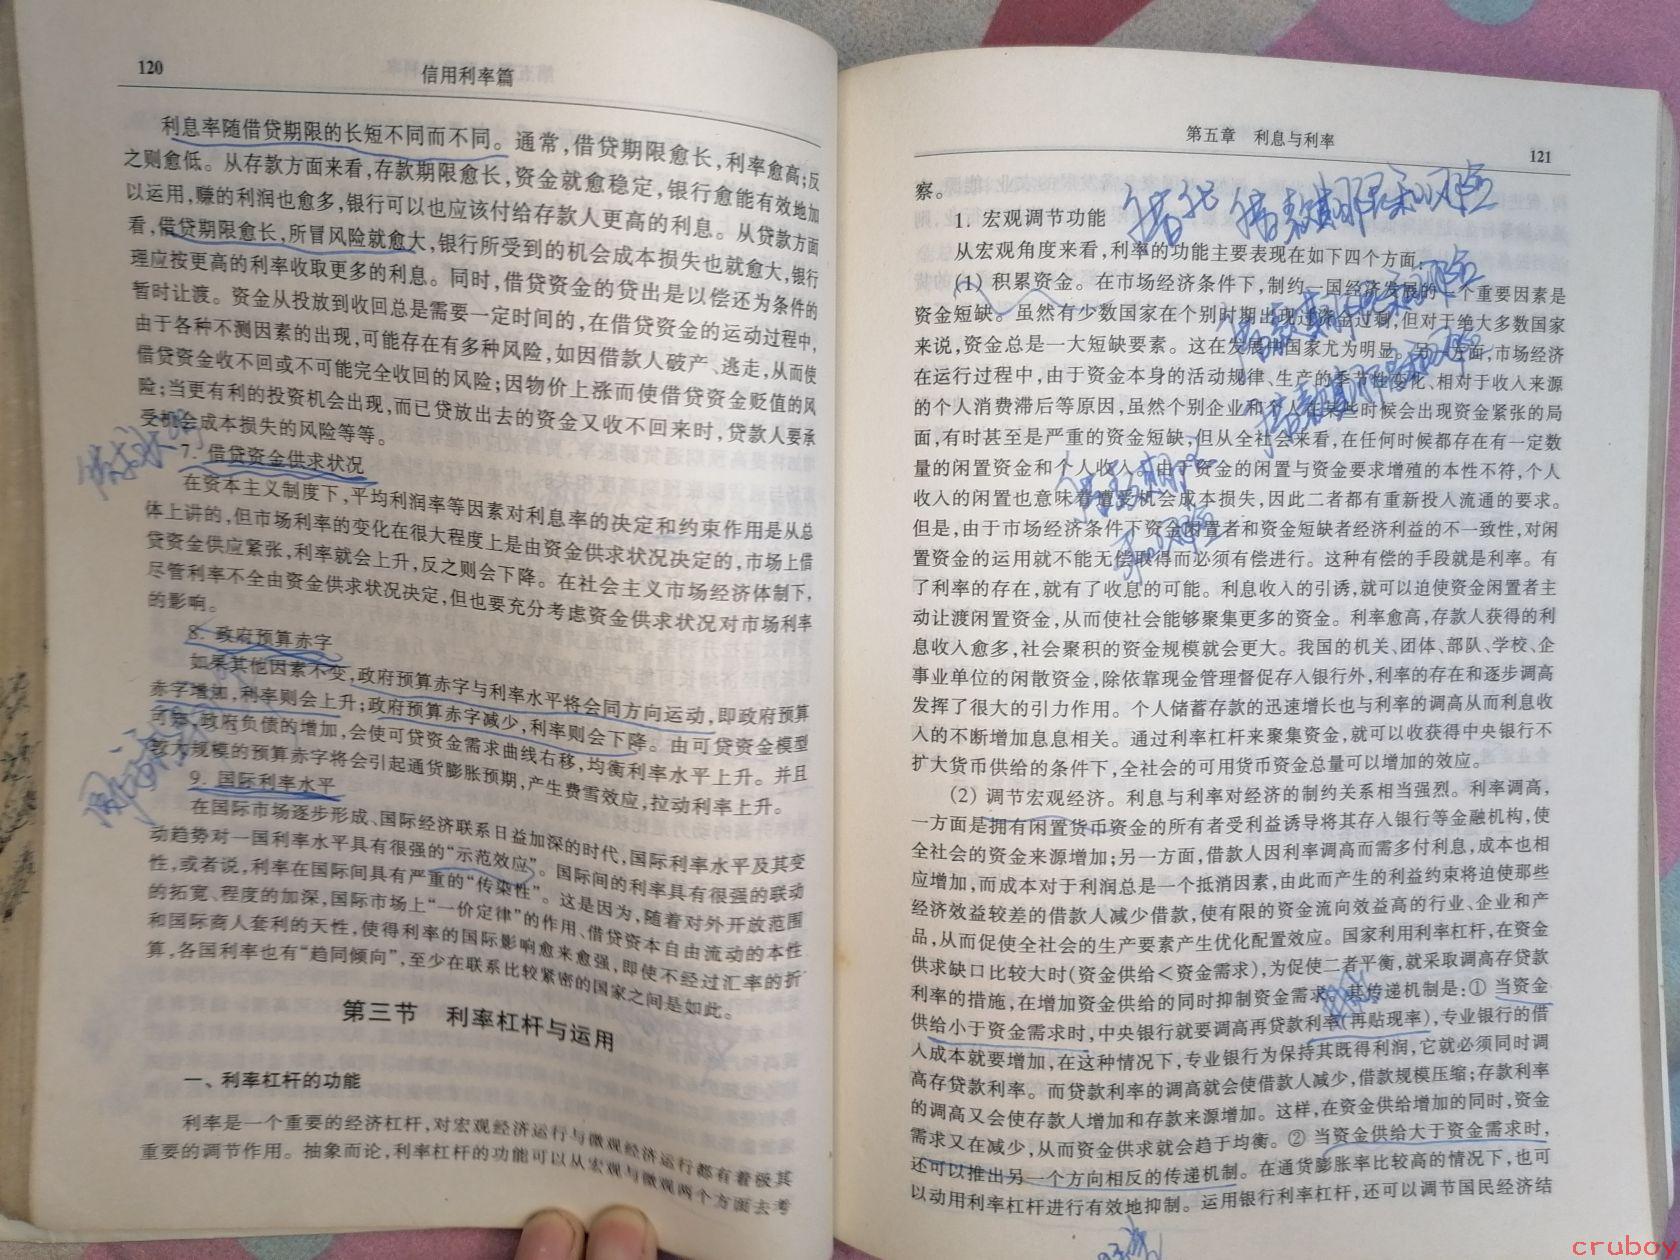 120
信用利率篇
利息率随借贷期限的长短不同而不同。通常,借贷期限愈长,利率愈高;反
之则愈低。从存款方面来看,存款期限愈长,资金就愈稳定,银行愈能有效地加
以运用,赚的利润也愈多,银行可以也应该付给存款人更高的利息。从贷款方面
看,借贷期限愈长,所冒风险就愈大,银行所受到的机会成本损失也就愈大,银行
理应按更高的利率收取更多的利息。同时,借贷资金的贷出是以偿还为条件的
暂时让渡。资金从投放到收回总是需要一定时间的,在借贷资金的运动过程中,
由于各种不测因素的出现,可能存在有多种风险,如因借款人破产、逃走,从而使
借贷资金收不回或不可能完全收回的风险;因物价上涨而使借贷资金贬值的风
险;当更有利的投资机会出现,而已贷放出去的资金又收不回来时,贷款人要承
受机会成本损失的风险等等。
7. 借贷资金供求状况
在资本主义制度下,平均利润率等因素对利息率的决定和约束作用是从总
体上讲的,但市场利率的变化在很大程度上是由资金供求状况决定的,市场上借
贷资金供应紧张,利率就会上升,反之则会下降。在社会主义市场经济体制下,
尽管利率不全由资金供求状况决定,但也要充分考虑资金供求状况对市场利率
的影响。
8. 政府预算赤字
如果其他因素不变,政府预算赤字与利率水平将会同方向运动,即政府预算
赤字增加,利率则会上升;政府预算赤字减少,利率则会下降。由可贷资金模型
可知,政府负债的增加,会使可贷资金需求曲线右移,均衡利率水平上升。并且
较大规模的预算赤字将会引起通货膨胀预期,产生费雪效应,拉动利率上升。
9. 国际利率水平
在国际市场逐步形成、国际经济联系日益加深的时代,国际利率水平及其变
动趋势对一国利率水平具有很强的“示范效应”。国际间的利率具有很强的联动
性,或者说,利率在国际间具有严重的“传染性”。这是因为,随着对外开放范围
的拓宽、程度的加深,国际市场上“一价定律”的作用、借贷资本自由流动的本性
和国际商人套利的天性,使得利率的国际影响愈来愈强,即使不经过汇率的折
算,各国利率也有“趋同倾向”,至少在联系比较紧密的国家之间是如此。
第三节 利率杠杆与运用
一、利率杠杆的功能
利率是一个重要的经济杠杆,对宏观经济运行与微观经济运行都有着极其
重要的调节作用。抽象而论,利率杠杆的功能可以从宏观与微观两个方面去考
第五章 利息与利率
121
察。
1. 宏观调节功能
从宏观角度来看,利率的功能主要表现在如下四个方面。
(1) 积累资金。在市场经济条件下,制约一国经济发展的一个重要因素是
资金短缺。虽然有少数国家在个别时期出现过资金过剩,但对于绝大多数国家
来说,资金总是一大短缺要素。这在发展中国家尤为明显。另一方面,市场经济
在运行过程中,由于资金本身的活动规律、生产的季节性变化、相对于收入来源
的个人消费滞后等原因,虽然个别企业和个人在某些时候会出现资金紧张的局
面,有时甚至是严重的资金短缺,但从全社会来看,在任何时候都存在有一定数
量的闲置资金和个人收入。由于资金的闲置与资金要求增殖的本性不符,个人
收入的闲置也意味着遭受机会成本损失,因此二者都有重新投入流通的要求。
但是,由于市场经济条件下资金闲置者和资金短缺者经济利益的不一致性,对闲
置资金的运用就不能无偿取得而必须有偿进行。这种有偿的手段就是利率。有
了利率的存在,就有了收息的可能。利息收入的引诱,就可以迫使资金闲置者主
动让渡闲置资金,从而使社会能够聚集更多的资金。利率愈高,存款人获得的利
息收入愈多,社会聚积的资金规模就会更大。我国的机关、团体、部队、学校、企
事业单位的闲散资金,除依靠现金管理督促存入银行外,利率的存在和逐步调高
发挥了很大的引力作用。个人储蓄存款的迅速增长也与利率的调高从而利息收
入的不断增加息息相关。通过利率杠杆来聚集资金,就可以收获得中央银行不
扩大货币供给的条件下,全社会的可用货币资金总量可以增加的效应。
(2) 调节宏观经济。利息与利率对经济的制约关系相当强烈。利率调高,
一方面是拥有闲置货币资金的所有者受利益诱导将其存入银行等金融机构,使
全社会的资金来源增加;另一方面,借款人因利率调高而需多付利息,成本也相
应增加,而成本对于利润总是一个抵消因素,由此而产生的利益约束将迫使那些
经济效益较差的借款人减少借款,使有限的资金流向效益高的行业、企业和产
品,从而促使全社会的生产要素产生优化配置效应。国家利用利率杠杆,在资金
供求缺口比较大时(资金供给<资金需求),为促使二者平衡,就采取调高存贷款
利率的措施,在增加资金供给的同时抑制资金需求。其传递机制是:① 当资金
供给小于资金需求时,中央银行就要调高再贷款利率(再贴现率),专业银行的借
入成本就要增加,在这种情况下,专业银行为保持其既得利润,它就必须同时调
高存贷款利率。而贷款利率的调高就会使借款人减少,借款规模压缩;存款利率
的调高又会使存款人增加和存款来源增加。这样,在资金供给增加的同时,资金
需求又在减少,从而资金供求就会趋于均衡。② 当资金供给大于资金需求时,
还可以推出另一个方向相反的传递机制。在通货膨胀率比较高的情况下,也可
以动用利率杠杆进行有效地抑制。运用银行利率杠杆,还可以调节国民经济结
cruboy